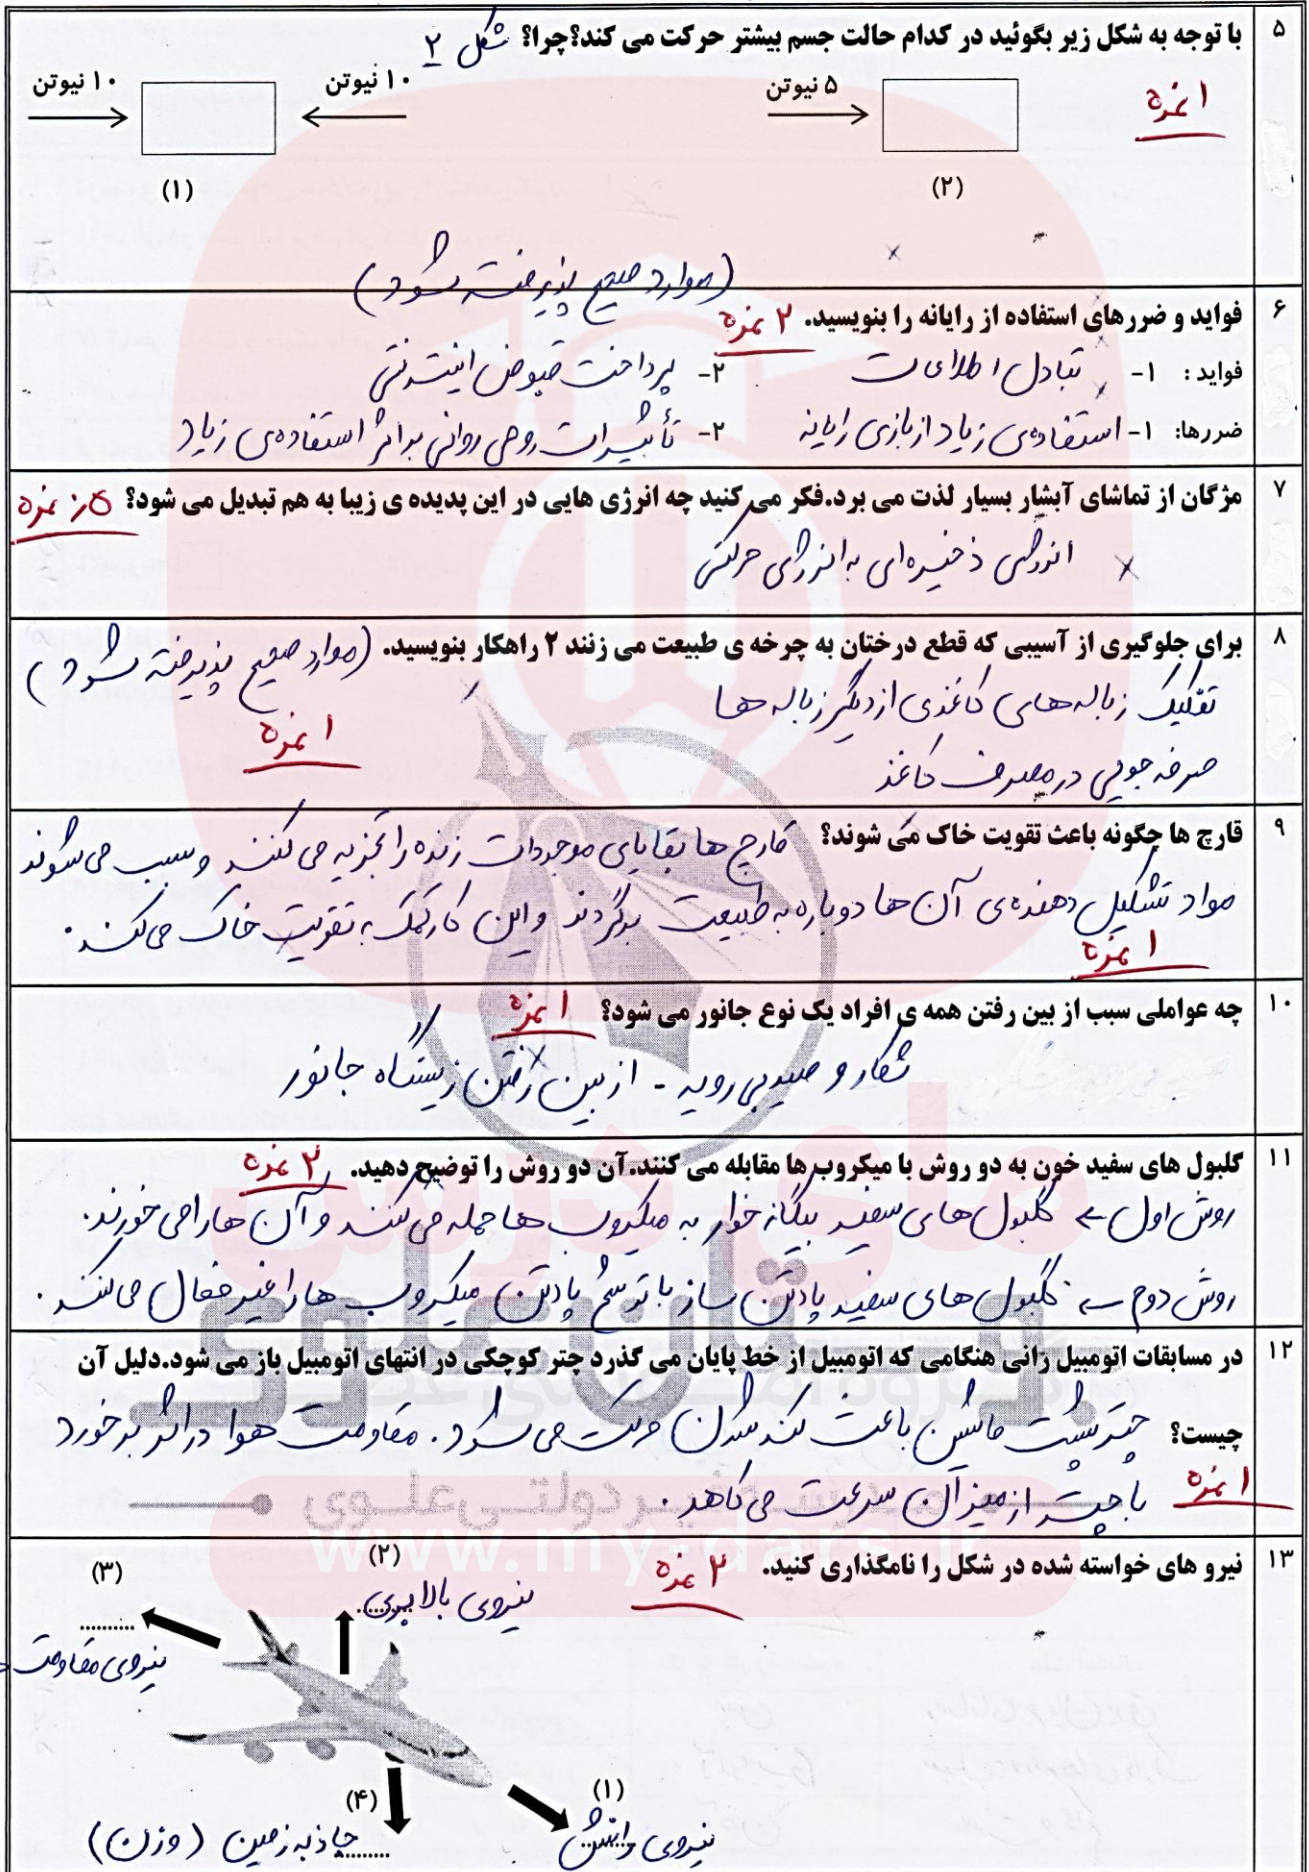 ۵ با توجه به شکل زیر بگوئید در کدام حالت جسم بیشتر حرکت می کند؟چرا؟ شکل ۲
۱ نمره
۵ نیوتن
۱۰ نیوتن
۱۰ نیوتن
(۲)
(۱)
(موارد صحیح پذیرفته شود)
۶ فواید و ضررهای استفاده از رایانه را بنویسید. ۲ نمره
فواید : ۱- تبادل اطلاعات ۲- پرداخت قبوض اینترنتی
ضررها: ۱- استفاده‌ی زیاد از بازی رایانه ۲- تأثیرات روحی روانی بر اثر استفاده‌ی زیاد
۷ مژگان از تماشای آبشار بسیار لذت می برد.فکر می کنید چه انرژی هایی در این پدیده ی زیبا به هم تبدیل می شود؟ ۰/۵ نمره
انرژی ذخیره‌ای به انرژی حرکتی
۸ برای جلوگیری از آسیبی که قطع درختان به چرخه ی طبیعت می زنند ۲ راهکار بنویسید. (موارد صحیح پذیرفته شود)
تفکیک زباله‌های کاغذی از دیگر زباله ها
۱ نمره
صرفه جویی در مصرف کاغذ
۹ قارچ ها چگونه باعث تقویت خاک می شوند؟ قارچ ها بقایای موجودات زنده را تجزیه می کنند و سبب می شوند
مواد تشکیل دهنده‌ی آن ها دوباره به طبیعت برگردند و این کار کمک به تقویت خاک می کند.
۱ نمره
۱۰ چه عواملی سبب از بین رفتن همه ی افراد یک نوع جانور می شود؟ ۱ نمره
شکار و صید بی رویه - از بین رفتن زیستگاه جانور
۱۱ گلبول های سفید خون به دو روش با میکروب ها مقابله می کنند.آن دو روش را توضیح دهید. ۲ نمره
روش اول ← گلبول های سفید بیگانه خوار به میکروب ها حمله می کنند و آن ها را می خورند.
روش دوم ← گلبول های سفید پادتن ساز با ترشح پادتن میکروب ها را غیر فعال می کنند.
۱۲ در مسابقات اتومبیل رانی هنگامی که اتومبیل از خط پایان می گذرد چتر کوچکی در انتهای اتومبیل باز می شود.دلیل آن
چیست؟ چتر پشت ماشین باعث کند شدن حرکت می شود. مقاومت هوا در اثر برخورد
با چتر از میزان سرعت می کاهد.
۱ نمره
مدرسه غیر دولتی علوی
www.my-dars.ir
۱۳ نیرو های خواسته شده در شکل را نامگذاری کنید. ۲ نمره
(۲)
(۳)
نیروی بالا بری
نیروی مقاومت
(۱)
(۴)
نیروی رانش
جاذبه زمین (وزن)